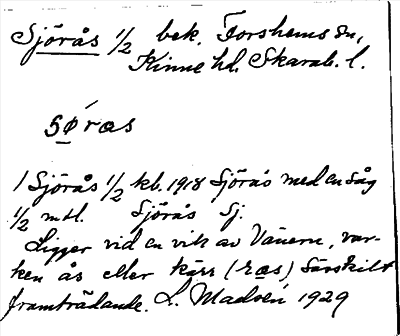 Sjörås 1/2 bek. Forshems sn,
Kinne hd. Skarab. l.
sø´ras
1 Sjörås 1/2 kb. 1918 Sjörås med en såg
1/2 mtl. Sjörås Sj.
Ligger vid en vik av Vänern, var-
ken ås eller kärr (ras) särskilt
framträdande. L. Madsén 1929